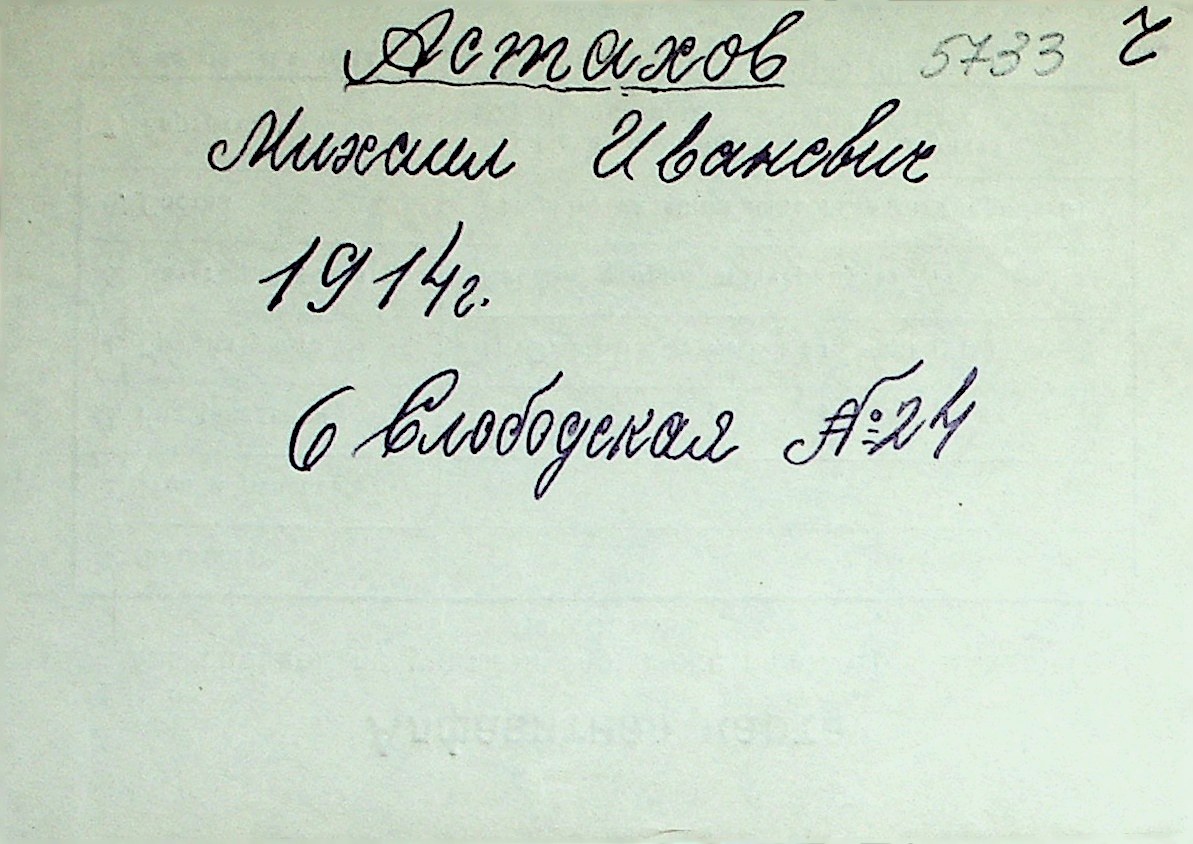 Астахов 5733 ч
Михаил Иванович
1914г.
6 Слободская №24
Алфавитная карта